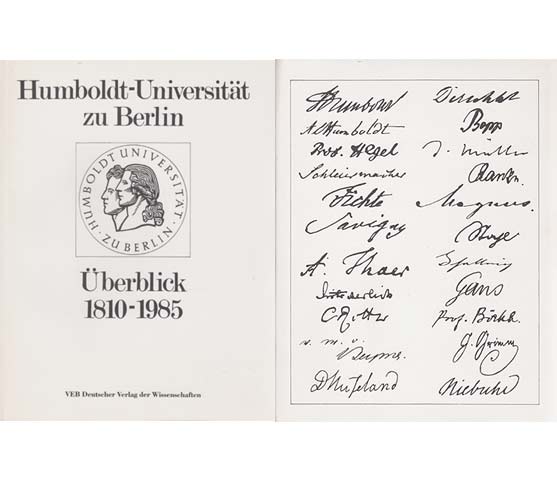 Humboldt-Universität
zu Berlin
· HUMBOLDT UNIVERSITÄT ·
ZU BERLIN
Überblick
1810-1985
VEB Deutscher Verlag der Wissenschaften
Humboldt
AlHumboldt
Prof. Hegel
Schleiermacher
Fichte
Savigny
A. Thaer
C Ritter
v. m. v.
DHufeland
Dirichlet
Bopp
J. Müller
Ranke
Magnus.
Gans
Prof. Böckh
G. Grimm
Niebuhr